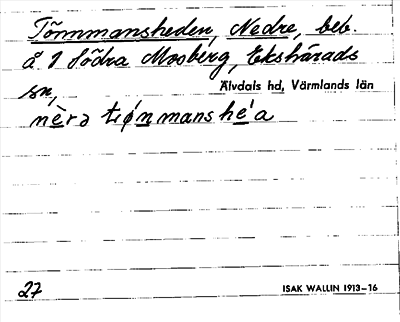 Tömmansheden, Nedre, beb.
å 1 Södra Mosberg, Ekshärads
sn, Älvdals hd, Värmlands län
nèrə tıǿnmanshe´a
27 ISAK WALLIN 1913–16